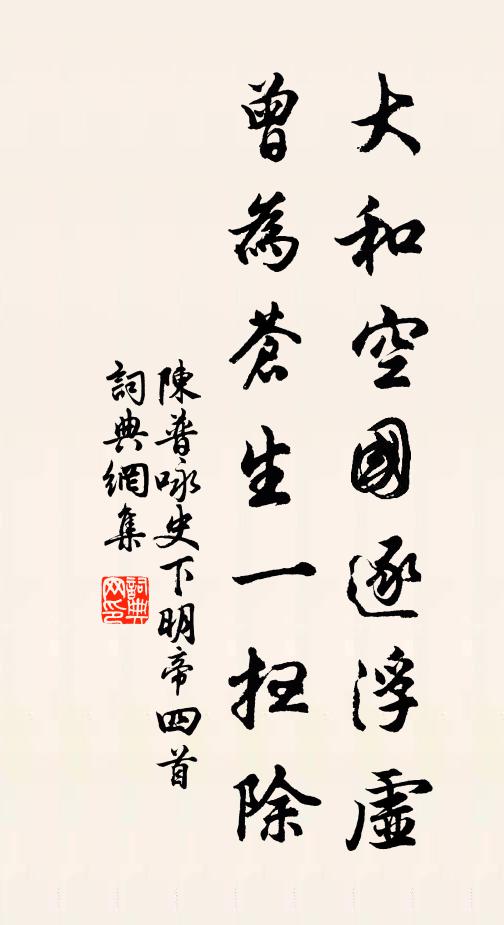 大和空國逐浮虛
曾為蒼生一扫除
陳普咏史下明帝四首
詞典網集
詞典网印